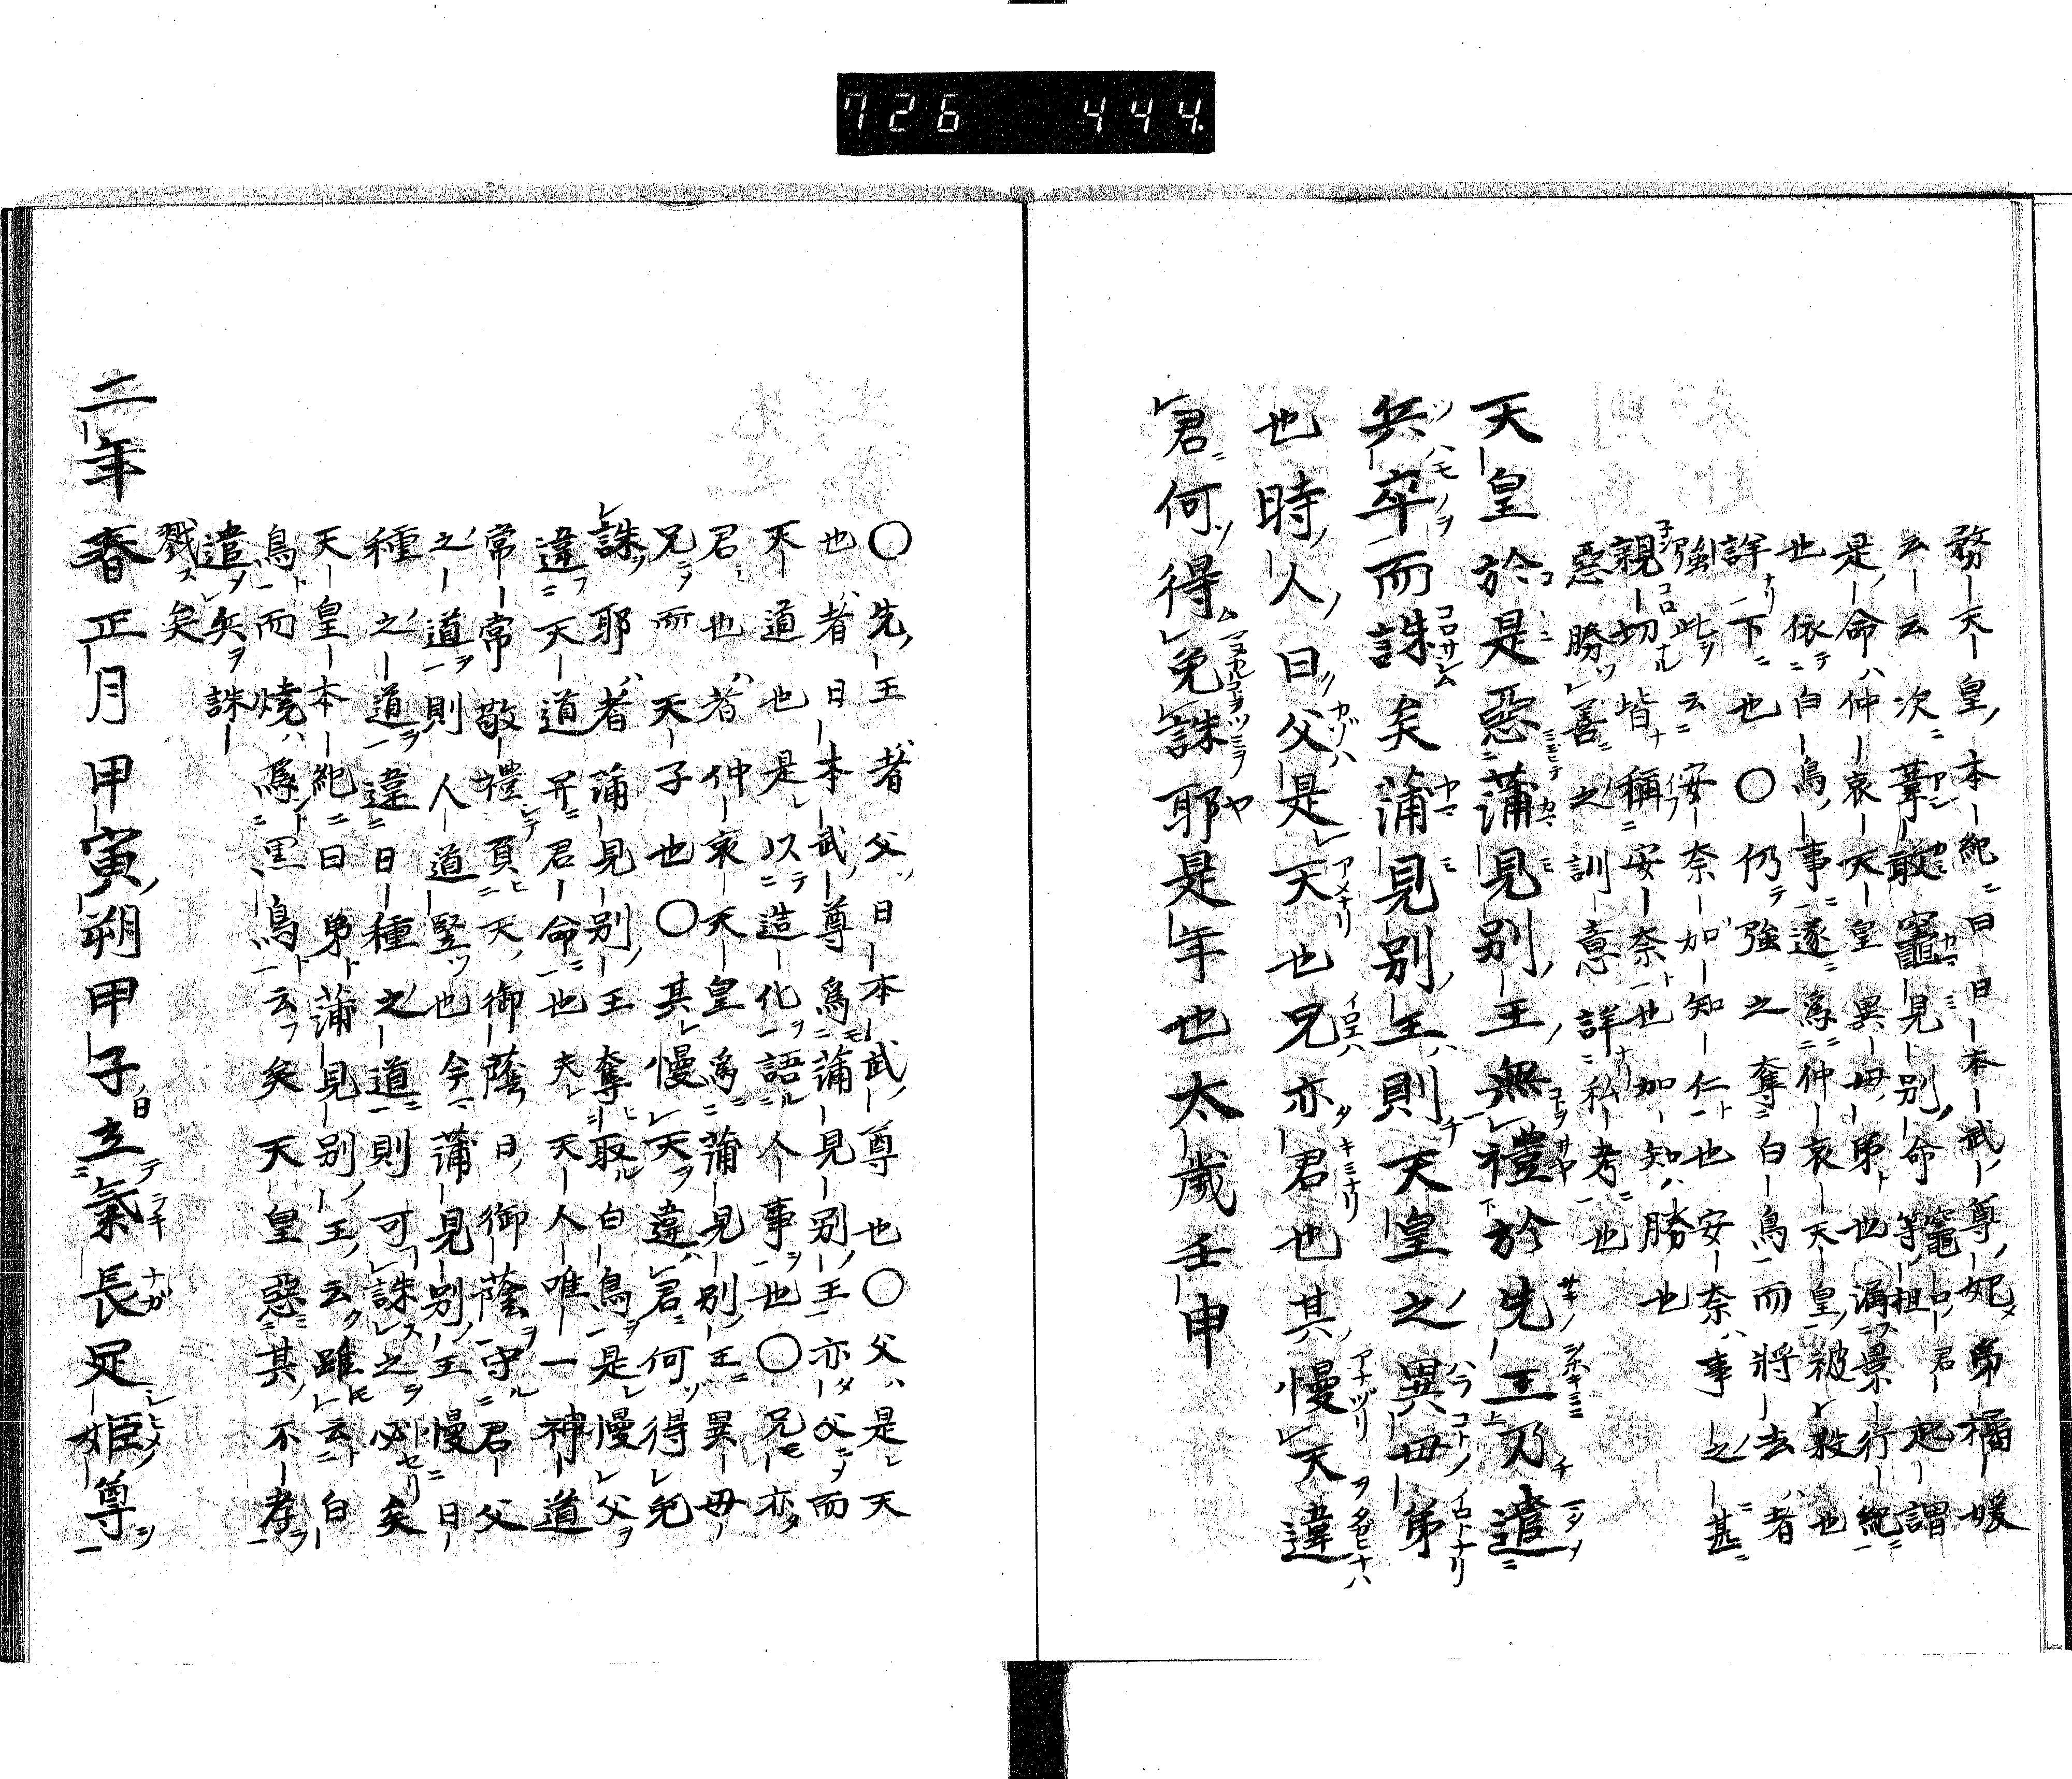 726 444
務天皇本紀曰日本武尊妃弟橘媛
云云次葦敢竈見別命竈口君等祖起謂
是命仲哀天皇異母弟也漏景行紀
也依白鳥事逐爲仲哀天皇被殺也
詳下也〇仍強之奪白鳥而將去者
強此云安奈加知仁也安奈事之甚
親切皆稱安奈也加知勝也
惡勝善之訓意詳私考也
天皇於是惡蒲見別王無禮於先王乃遣
兵卒而誅矣蒲見別王則天皇之異母弟
也時人曰父是天也兄亦君也其慢天違
君何得免誅耶是年也太歲壬申
〇先王者父日本武尊也〇父是天
也者日本武尊爲蒲見別王亦父而
天道也是以造化語人事也〇兄亦
君也者仲哀天皇爲蒲見別王異母
兄而天子也〇其慢天違君何得免
誅耶者蒲見別王奪取白鳥是慢父
違天道并君命也夫天人唯一神道
常常敬禮頂天御蔭日御蔭守君父
之道則人道堅也今蒲見別王慢日
種之道違日種之道則可誅之必矣
天皇本紀曰弟蒲見別王云雖云白
鳥而燒爲黒鳥云矣天皇惡其不孝
遣兵誅
戮矣
二年春正月甲寅朔甲子立氣長足姫尊